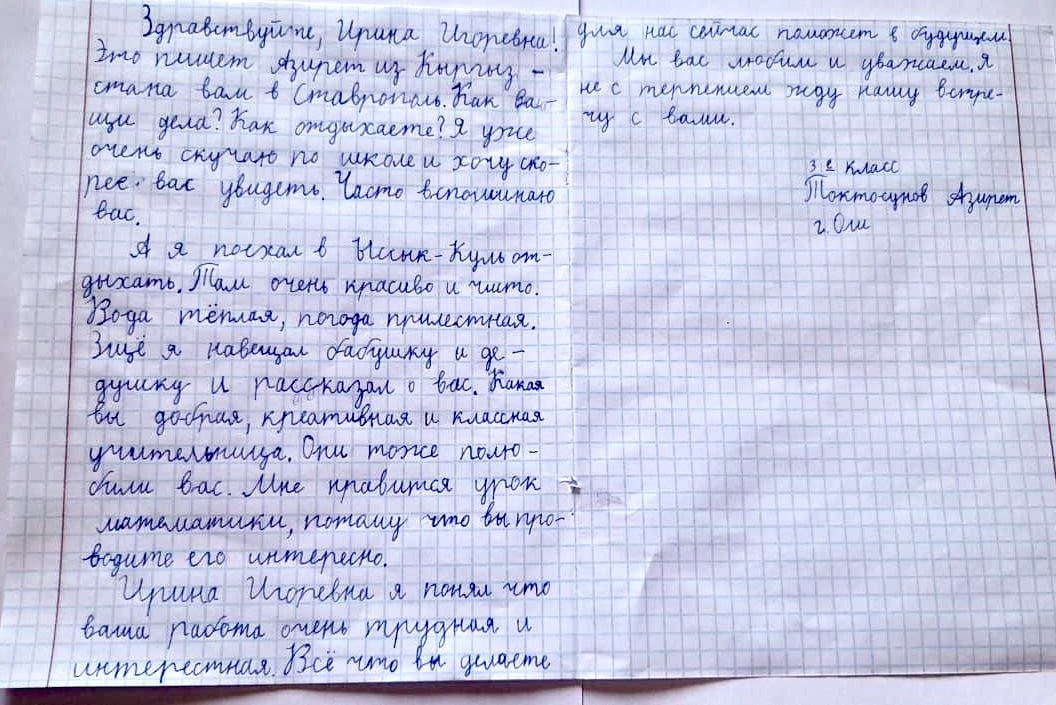 Здравствуйте, Ирина Игоревна!
Это пишет Азирет из Кыргыз -
стана вам в Ставрополь. Как ва-
щи дела? Как отдыхаете? Я уже
очень скучаю по школе и хочу ско-
рее вас увидеть. Часто вспоминаю
вас.
А я поехал в Ыссык-Куль от-
дыхать. Там очень красиво и чисто.
Вода тёплая, погода прилестная.
Ещё я навещал бабушку и де -
душку и рассказал о вас. Какая
вы добрая, креативная и классная
учительница. Они тоже полю -
били вас. Мне нравится урок
математики, потому что вы про-
водите его интересно.
Ирина Игоревна я понял что
ваша работа очень трудная и
интерестная. Всё что вы делаете
для нас сейчас поможет в будущем!
Мы вас любим и уважаем. Я
не с терпением жду нашу встре-
чу с вами.
3 е класс
Токтосунов Азирет
г. Ош